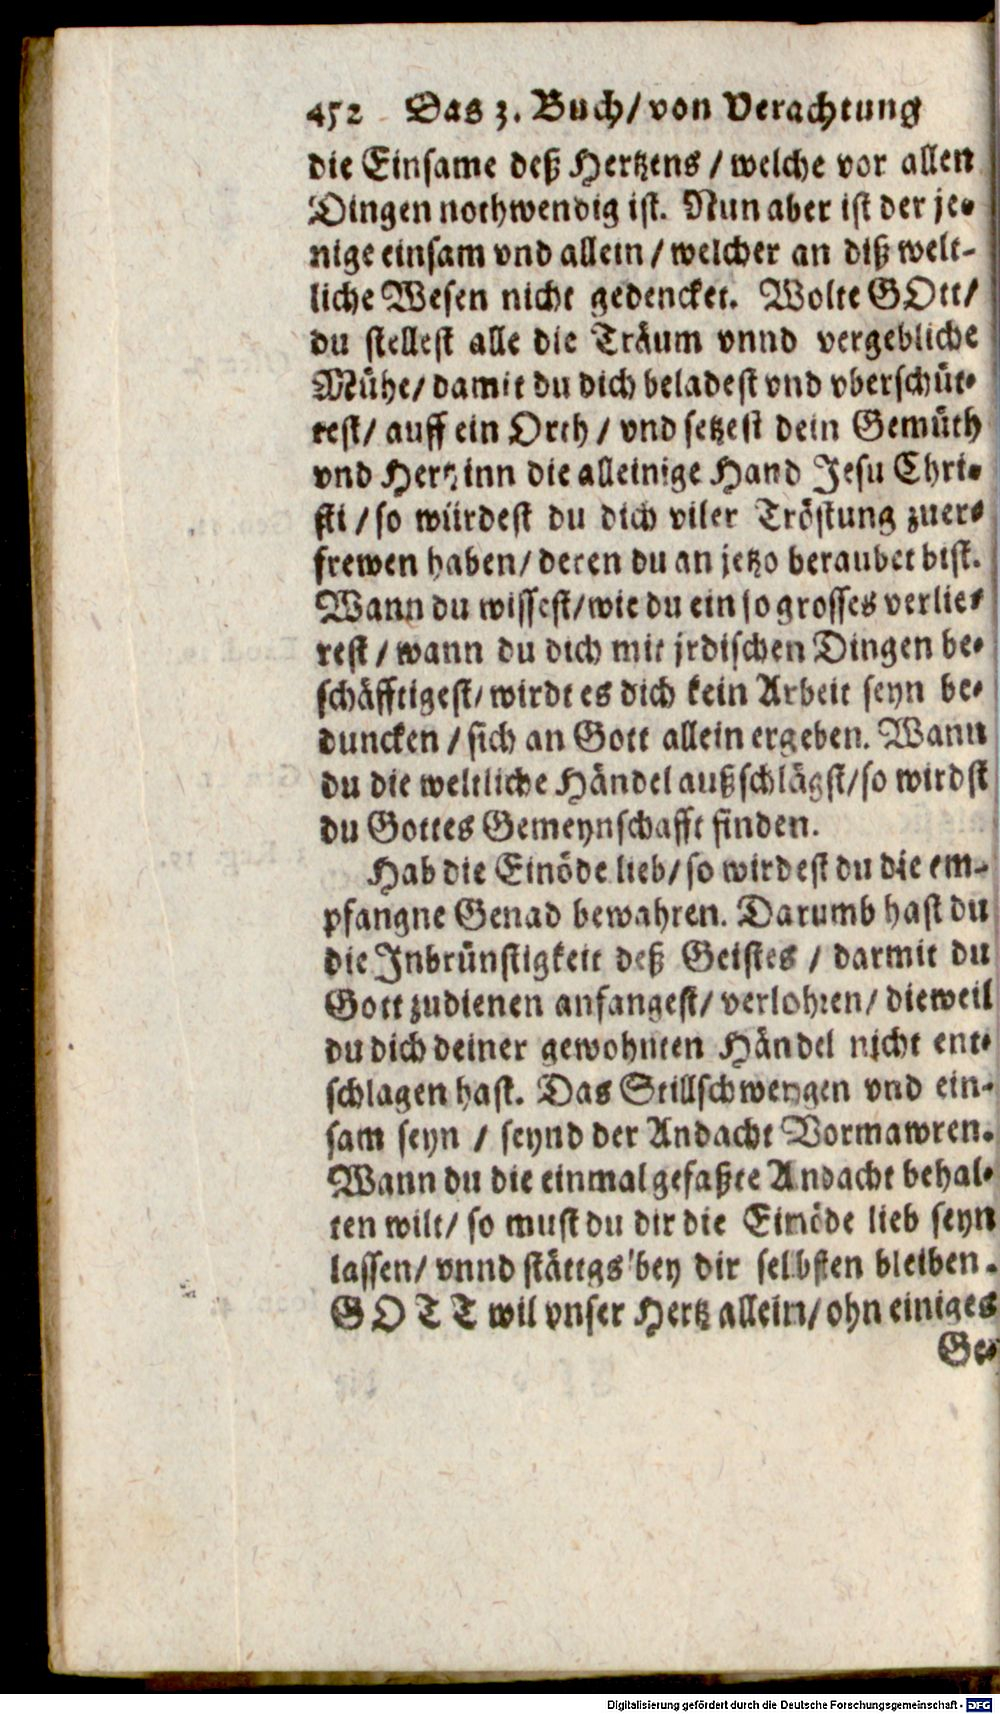 452 Das 3. Buch/ von Verachtung
die Einsame deß Hertzens / welche vor allen
Dingen nothwendig ist. Nun aber ist der je-
nige einsam vnd allein / welcher an diß welt-
liche Wesen nicht gedencket. Wolte GOtt/
du stellest alle die Träum vnnd vergebliche
Mühe/ damit du dich beladest vnd vberschüt-
test/ auff ein Orth / vnd setzest dein Gemüth
vnd Hertz inn die alleinige Hand Jesu Chri-
sti / so würdest du dich viler Tröstung zuer-
frewen haben/ deren du an jetzo beraubet bist.
Wann du wissest/ wie du ein so grosses verlie-
rest / wann du dich mit jrdischen Dingen be-
schäfftigest/ wirdt es dich kein Arbeit seyn be-
duncken / sich an Gott allein ergeben. Wann
du die weltliche Händel außschlägst/ so wirdst
du Gottes Gemeynschafft finden.
Hab die Einöde lieb/ so wirdest du die em-
pfangne Genad bewahren. Darumb hast du
die Jnbrünstigkeit deß Geistes / darmit du
Gott zudienen anfangest/ verlohren/ dieweil
du dich deiner gewohnten Händel nicht ent-
schlagen hast. Das Stillschweygen vnd ein-
sam seyn / seynd der Andacht Vormawren.
Wann du die einmal gefaßte Andacht behal-
ten wilt/ so must du dir die Einöde lieb seyn
lassen/ vnnd stättgs bey dir selbsten bleiben.
GOTT wil vnser Hertz allein/ ohn einiges
Ge-
Digitalisierung gefördert durch die Deutsche Forschungsgemeinschaft - DFG